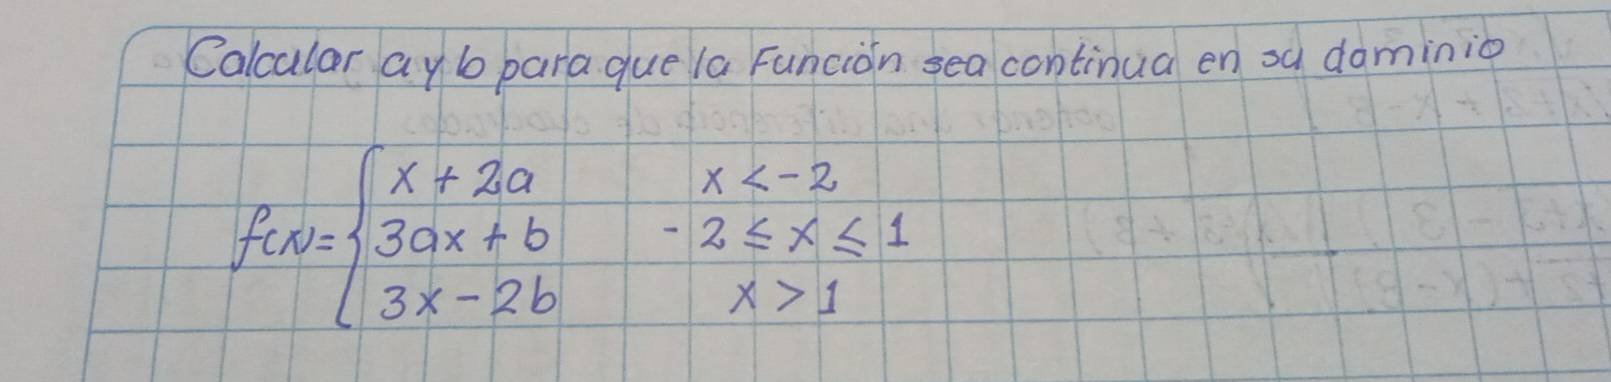 Calcular a y b para que la Función sea continua en su dominio
x + 2a x < -2
f(x)= { 3ax + b -2 ≤ x ≤ 1
3x - 2b x > 1